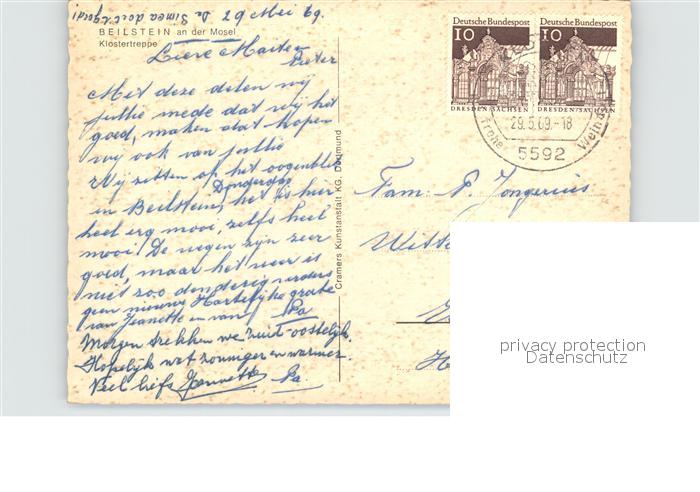 De Simca doet 't goed! 29 Mei 69.
BEILSTEIN an der Mosel
Klostertreppe
Lieve Marten
Pieter
Met deze delen wij
jullie mede dat wij het
goed maken, dat hopen
wij ook van jullie
Wij zitten op het oogenblik
Donderdag
in Beilstein, het is hier
heel erg mooi, zelfs heel
mooi! De wegen zijn zeer
goed, maar het weer is
niet zoo denderig verders
geen nieuws Hartelijke groete
van Jeanette en van Pa
Morgen trekken we zuid-oostelijk.
Hopelijk wat zonniger en warmer.
Veel liefs Jeannette Pa.
Cramers Kunstanstalt KG. Dortmund
Deutsche Bundespost
10
DRESDEN/SACHSEN
Deutsche Bundespost
10
DRESDEN/SACHSEN
29.5.69.-18
5592
Fam. P. Jongerius
privacy protection
Datenschutz